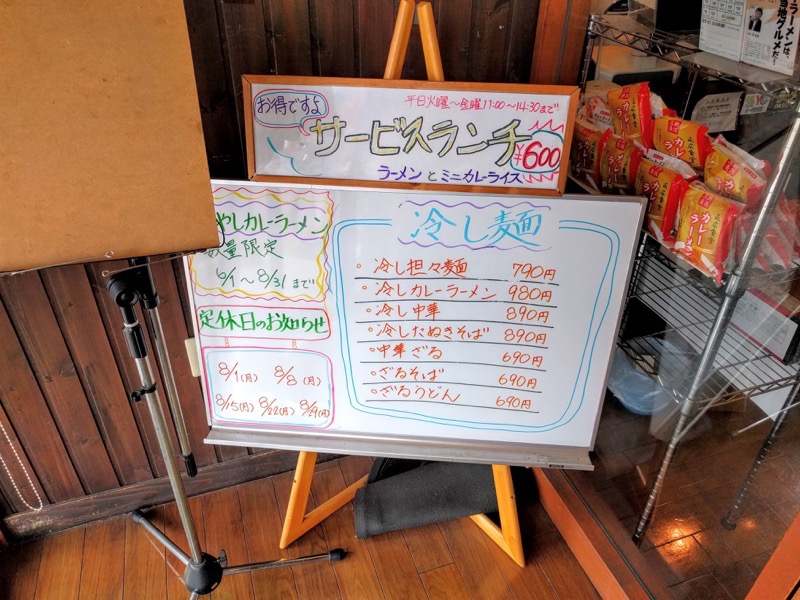 お得ですよ
平日火曜〜金曜11:00〜14:30まで
サービスランチ
¥600
ラーメンとミニカレーライス
やしカレーラーメン
数量限定
6/1〜8/31まで
定休日のお知らせ
8/1(月) 8/8(月)
8/15(月) 8/22(月) 8/29(月)
冷し麺
冷し担々麺 790円
冷しカレーラーメン 980円
冷し中華 890円
冷したぬきそば 890円
中華ざる 690円
ざるそば 690円
ざるうどん 690円
ラーメンは、
当地グルメだ!
カレーラーメン
カレーラーメン